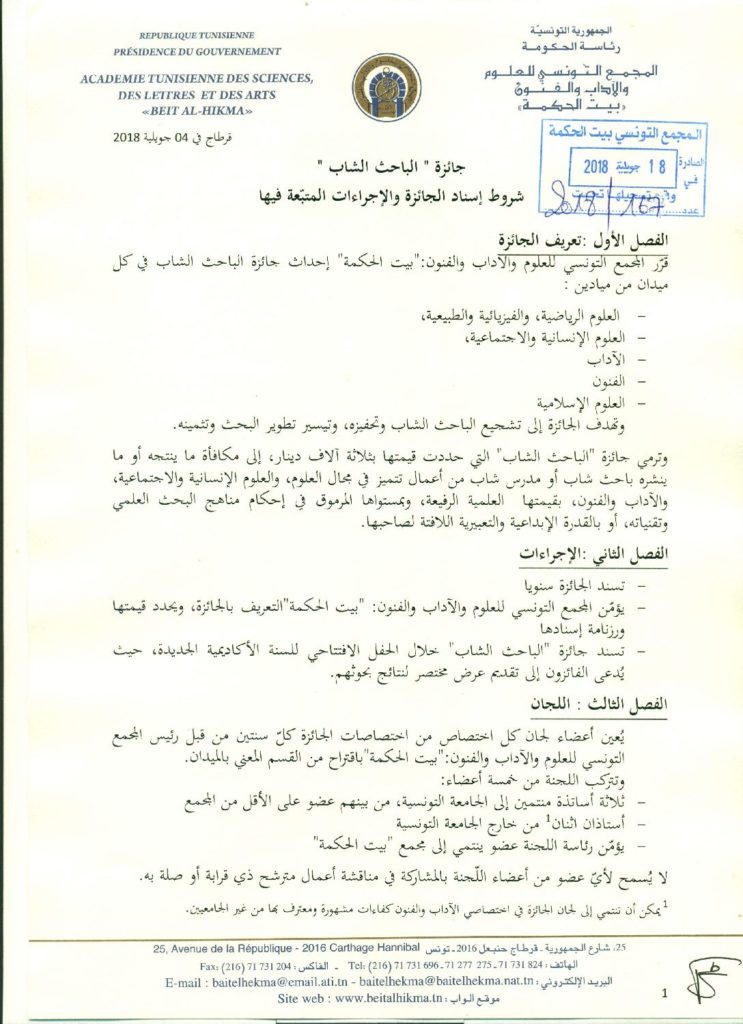 REPUBLIQUE TUNISIENNE
PRÉSIDENCE DU GOUVERNEMENT
ACADEMIE TUNISIENNE DES SCIENCES,
DES LETTRES ET DES ARTS
«BEIT AL-HIKMA»
الجمهورية التونسيّة
رئاسة الحكومة
المجمع التونسي للعلوم
والآداب والفنون
«بيت الحكمة»
قرطاج في 04 جويلية 2018
المجمع التونسي بيت الحكمة
الصادرة في
18 جويلية 2018
تحت
عدد 2018/167
جائزة " الباحث الشاب "
شروط إسناد الجائزة والإجراءات المتبّعة فيها
الفصل الأول :تعريف الجائزة
قرّر المجمع التونسي للعلوم والآداب والفنون:"بيت الحكمة" إحداث جائزة الباحث الشاب في كل
ميدان من ميادين :
– العلوم الرياضية، والفيزيائية والطبيعية،
– العلوم الإنسانية والاجتماعية،
– الآداب
– الفنون
– العلوم الإسلامية
وتهدف الجائزة إلى تشجيع الباحث الشاب وتحفيزه، وتيسير تطوير البحث وتثمينه.
وترمي جائزة "الباحث الشاب" التي حددت قيمتها بثلاثة آلاف دينار، إلى مكافأة ما ينتجه أو ما
ينشره باحث شاب أو مدرس شاب من أعمال تتميز في مجال العلوم، والعلوم الإنسانية والاجتماعية،
والآداب والفنون، بقيمتها العلمية الرفيعة، وبمستواها المرموق في إحكام مناهج البحث العلمي
وتقنياته، أو بالقدرة الإبداعية والتعبيرية اللافتة لصاحبها.
الفصل الثاني :الإجراءات
– تسند الجائزة سنويا
– يؤمّن المجمع التونسي للعلوم والآداب والفنون: "بيت الحكمة"التعريف بالجائزة، ويحدد قيمتها
ورزنامة إسنادها
– تسند جائزة "الباحث الشاب" خلال الحفل الافتتاحي للسنة الأكاديمية الجديدة، حيث
يُدعى الفائزون إلى تقديم عرض مختصر لنتائج بحوثهم.
الفصل الثالث : اللجان
يُعين أعضاء لجان كل اختصاص من اختصاصات الجائزة كلّ سنتين من قبل رئيس المجمع
التونسي للعلوم والآداب والفنون:"بيت الحكمة"باقتراح من القسم المعني بالميدان.
وتتركب اللجنة من خمسة أعضاء:
– ثلاثة أساتذة منتمين إلى الجامعة التونسية، من بينهم عضو على الأقل من المجمع
– أستاذان اثنان1 من خارج الجامعة التونسية
– يؤمّن رئاسة اللجنة عضو ينتمي إلى مجمع "بيت الحكمة"
لا يُسمح لأيّ عضو من أعضاء اللّجنة بالمشاركة في مناقشة أعمال مترشح ذي قرابة أو صلة به.
1يمكن أن تنتمي إلى لجان الجائزة في اختصاصي الآداب والفنون كفاءات مشهورة ومعترف بها من غير الجامعيين.
25, Avenue de la République - 2016 Carthage Hannibal 25، شارع الجمهورية ـ قرطاج حنبعل 2016 ـ تونس
Fax: (216) 71 731 204 : الفاكس - Tel: (216) 71 731 696 - 71 277 275 - 71 731 824 : الهاتف
E-mail : baitelhekma@email.ati.tn - baitelhekma@baitelhekma.nat.tn : البريد الإلكتروني
Site web : www.beitalhikma.tn : موقع الواب
1